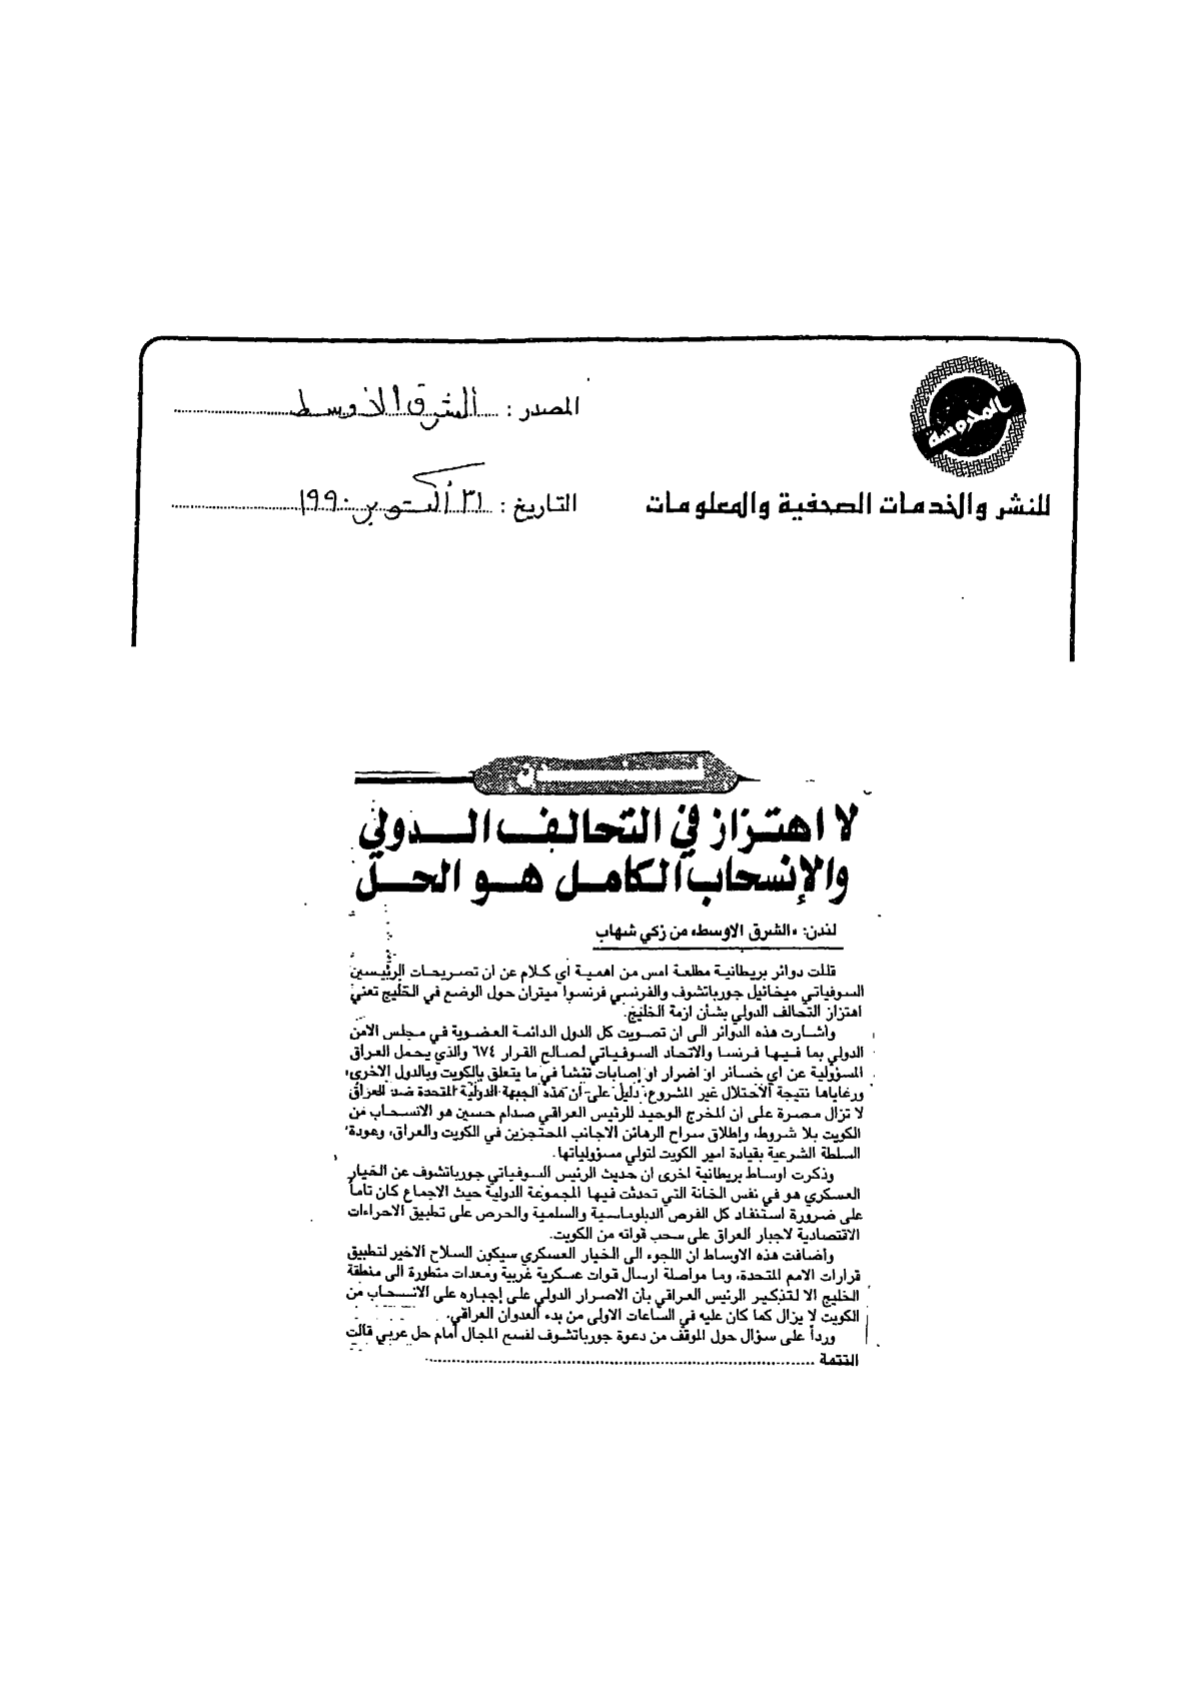 المحروسة
للنشر والخدمات الصحفية والمعلومات
المصدر : الشرق الأوسط
التاريخ : ٣١ أكتوبر ١٩٩٠
لا اهتزاز في التحالف الدولي
والإنسحاب الكامل هو الحل
لندن: «الشرق الاوسط» من زكي شهاب
قللت دوائر بريطانية مطلعة امس من اهمية اي كلام عن ان تصريحات الرئيسين
السوفياتي ميخائيل جورباتشوف والفرنسي فرنسوا ميتران حول الوضع في الخليج تعني
اهتزاز التحالف الدولي بشأن ازمة الخليج.
واشارت هذه الدوائر الى ان تصويت كل الدول الدائمة العضوية في مجلس الامن
الدولي بما فيها فرنسا والاتحاد السوفياتي لصالح القرار ٦٧٤ والذي يحمل العراق
المسؤولية عن اي خسائر او اضرار او إصابات تنشأ في ما يتعلق بالكويت وبالدول الاخرى،
ورعاياها نتيجة الاحتلال غير المشروع، دليل على ان هذه الجبهة الدولية المتحدة ضد العراق
لا تزال مصرة على ان المخرج الوحيد للرئيس العراقي صدام حسين هو الانسحاب من
الكويت بلا شروط، وإطلاق سراح الرهائن الاجانب المحتجزين في الكويت والعراق، وعودة
السلطة الشرعية بقيادة امير الكويت لتولي مسؤولياتها.
وذكرت اوساط بريطانية اخرى ان حديث الرئيس السوفياتي جورباتشوف عن الخيار
العسكري هو في نفس الخانة التي تحدثت فيها المجموعة الدولية حيث الاجماع كان تاماً
على ضرورة استنفاد كل الفرص الدبلوماسية والسلمية والحرص على تطبيق الاجراءات
الاقتصادية لاجبار العراق على سحب قواته من الكويت.
واضافت هذه الاوساط ان اللجوء الى الخيار العسكري سيكون السلاح الاخير لتطبيق
قرارات الامم المتحدة، وما مواصلة ارسال قوات عسكرية غربية ومعدات متطورة الى منطقة
الخليج الا لتذكير الرئيس العراقي بان الاصرار الدولي على إجباره على الانسحاب من
الكويت لا يزال كما كان عليه في الساعات الاولى من بدء العدوان العراقي.
ورداً على سؤال حول الموقف من دعوة جورباتشوف لفسح المجال أمام حل عربي قالت
التتمة